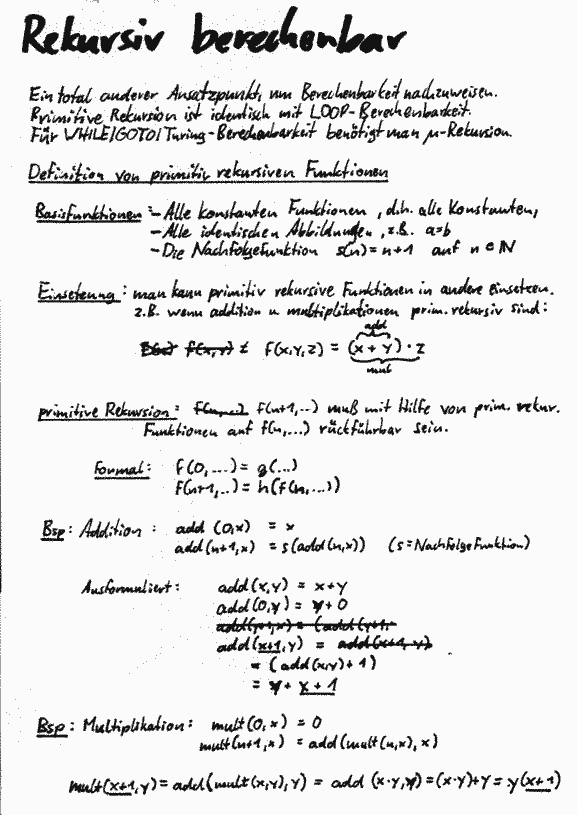 Rekursiv berechenbar
Ein total anderer Ansatzpunkt, um Berechenbarkeit nachzuweisen.
Primitive Rekursion ist identisch mit LOOP-Berechenbarkeit.
Für WHILE/GOTO/Turing-Berechenbarkeit benötigt man μ-Rekursion.
Definition von primitiv rekursiven Funktionen
Basisfunktionen: - Alle konstanten Funktionen, d.h. alle Konstanten,
- Alle identischen Abbildungen, z.B. a=b
- Die Nachfolgefunktion s(n)=n+1 auf n∈ℕ
Einsetzung: man kann primitiv rekursive Funktionen in andere einsetzen.
z.B. wenn addition u multiplikationen prim. rekursiv sind:
add
f(x,y) f(x,y,z) = (x + y) · z
mult
primitive Rekursion: f(n+1,..) muß mit Hilfe von prim. rekur.
Funktionen auf f(n,...) rückführbar sein.
Formal: f(0,...) = g(...)
f(n+1,..) = h(f(n,...))
Bsp: Addition: add (0,x) = x
add(n+1,x) = s(add(n,x)) (s=Nachfolgefunktion)
Ausformuliert: add(x,y) = x+y
add(0,y) = y+0
add(y+1,x) = (add(y+1,
add(x+1,y) = add(x+1,y)
= (add(x,y)+1)
= y + x+1
Bsp: Multiplikation: mult(0,x) = 0
mult(n+1,x) = add(mult(n,x),x)
mult(x+1,y) = add(mult(x,y),y) = add (x·y,y) = (x·y)+y = y(x+1)